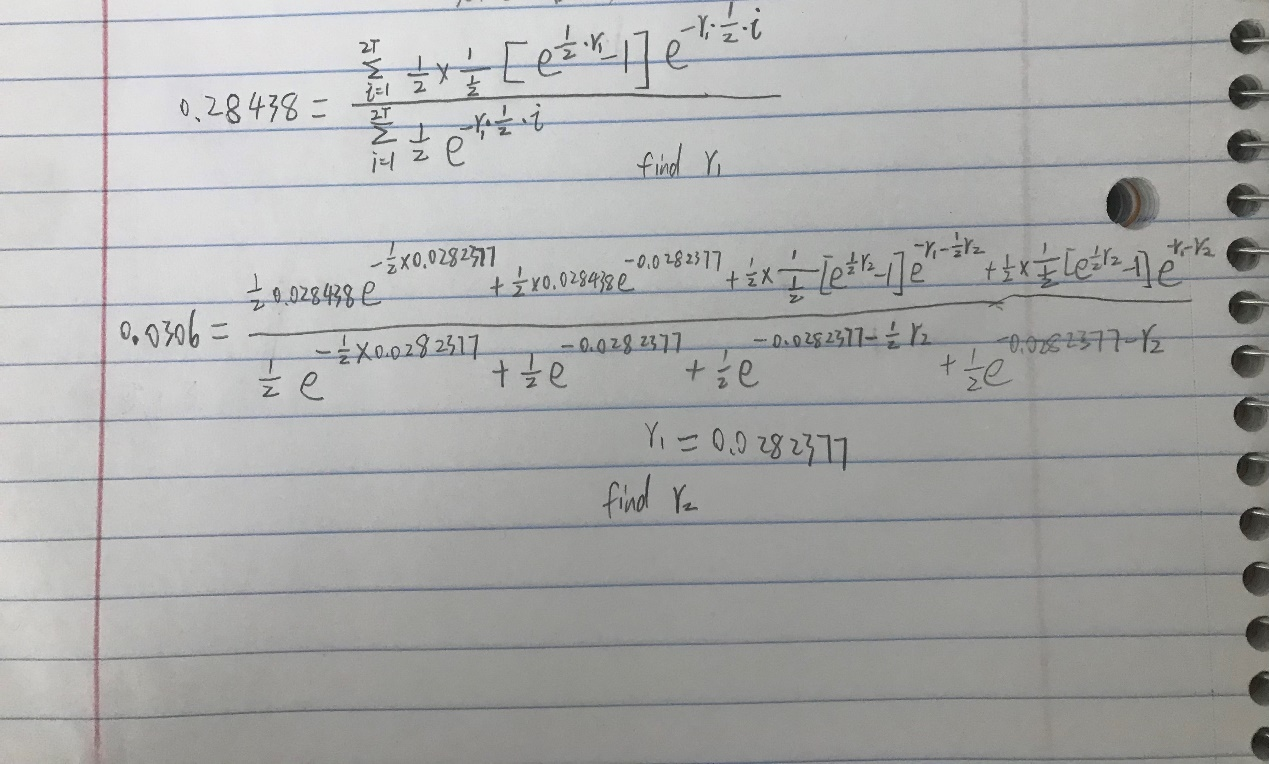 0.28438 = \frac{\sum_{i=1}^{2T} \frac{1}{2} × \frac{1}{\frac{1}{2}} [e^{\frac{1}{2}·r_1} - 1] e^{-r_1·\frac{1}{2}·i}}{\sum_{i=1}^{2T} \frac{1}{2} e^{-r_1·\frac{1}{2}·i}}
find r_1
0.0306 = \frac{\frac{1}{2} 0.028438 e^{-\frac{1}{2}×0.0282377} + \frac{1}{2}×0.028438 e^{-0.0282377} + \frac{1}{2} × \frac{1}{\frac{1}{2}} [e^{\frac{1}{2}r_2} - 1] e^{-r_1-\frac{1}{2}r_2} + \frac{1}{2} × \frac{1}{\frac{1}{2}} [e^{\frac{1}{2}r_2} - 1] e^{-r_1-r_2}}{\frac{1}{2} e^{-\frac{1}{2}×0.0282377} + \frac{1}{2} e^{-0.0282377} + \frac{1}{2} e^{-0.0282377-\frac{1}{2}r_2} + \frac{1}{2} e^{-0.0282377-r_2}}
r_1 = 0.0282377
find r_2